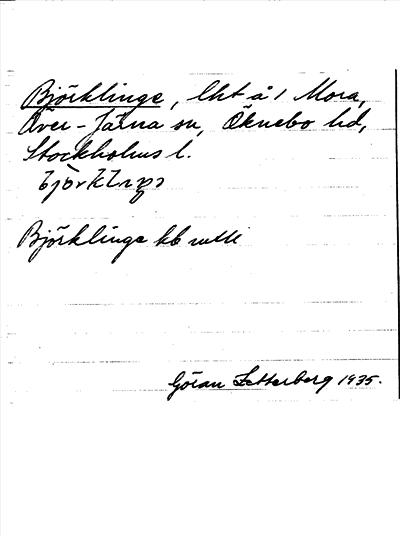 Björklinge, lht å 1 Mora,
Över-Järna sn, Öknebo hd,
Stockholms l.
Björklinge kb
Göran Zetterberg 1935.